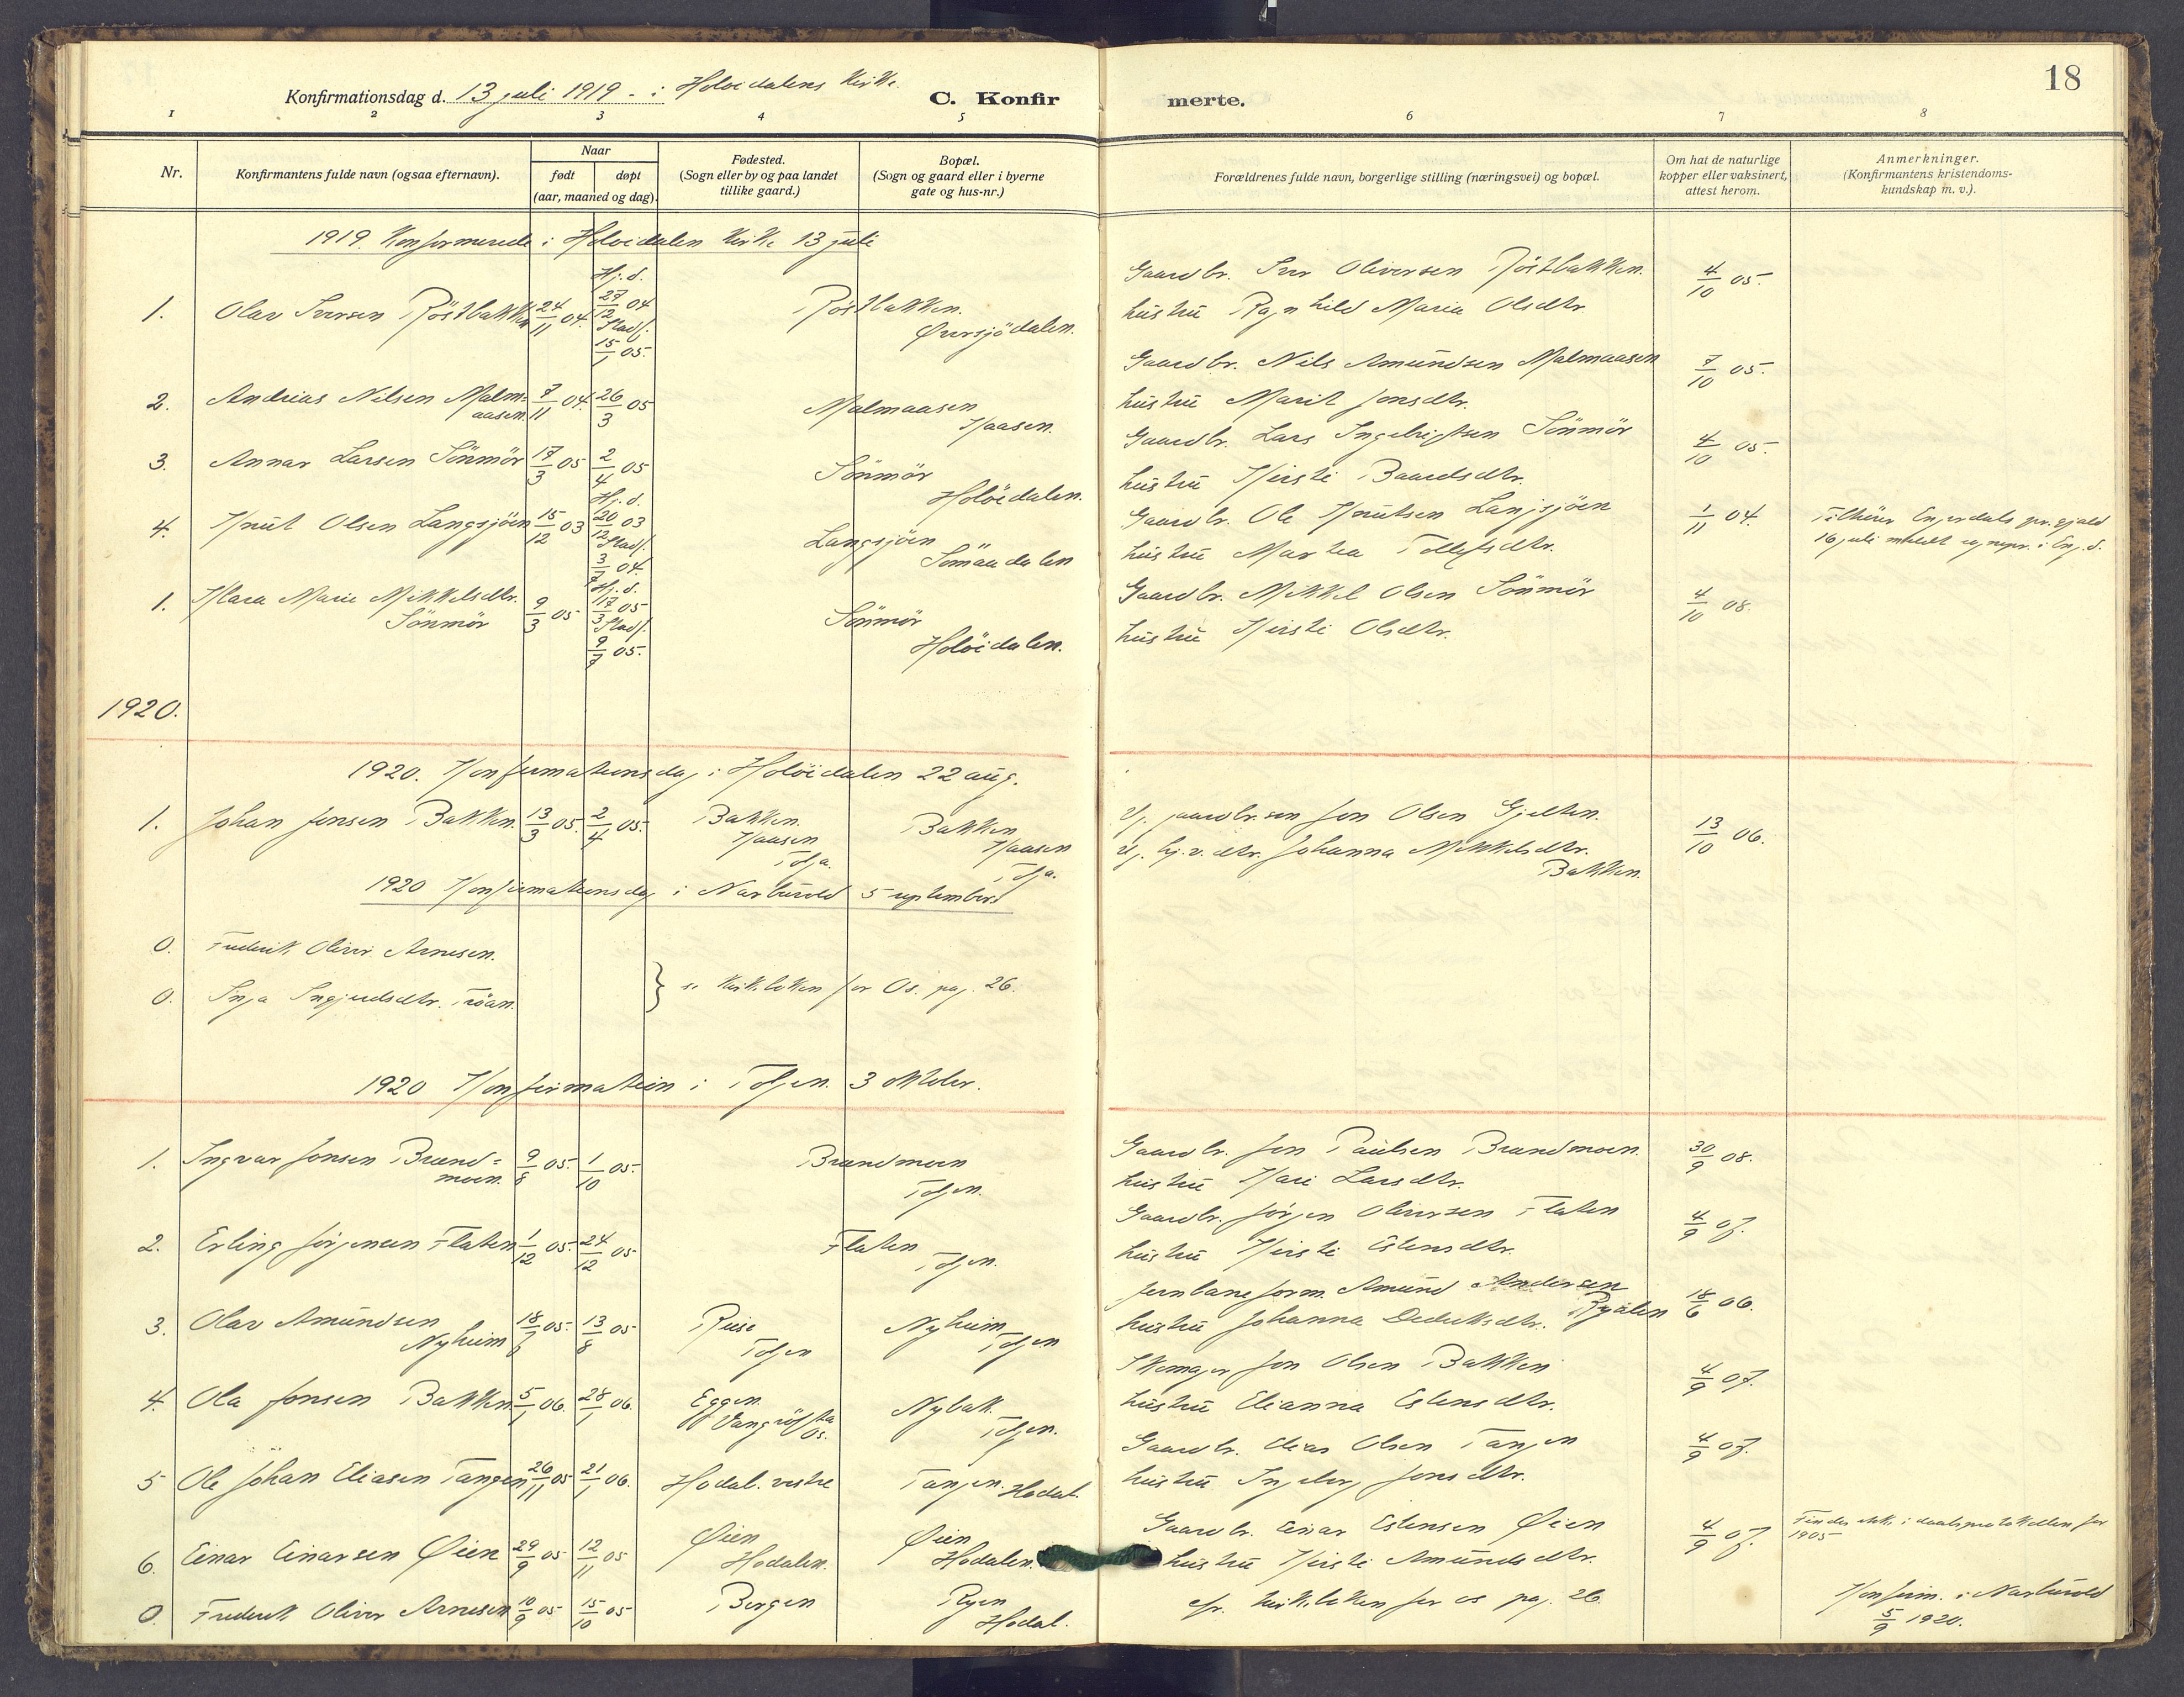 Konfirmationsdag d. 13 juli 1919 - i Holöidalens Kirke.
C. Konfirmerte.
18
1 2 3 4 5 6 7 8
Nr.
Konfirmantens fulde navn (ogsaa efternavn).
Naar
født døpt
(aar, maaned og dag).
Fødested.
(Sogn eller by og paa landet
tillike gaard.)
Bopæl.
(Sogn og gaard eller i byerne
gate og hus-nr.)
Forældrenes fulde navn, borgerlige stilling (næringsvei) og bopæl.
Om hat de naturlige
kopper eller vaksinert,
attest herom.
Anmerkninger.
(Konfirmantens kristendoms-
kundskap m. v.).
1919. Konfirmerede i Holöidalen Kirke 13 juli
1. Olav Iversen Röstbakken 24/11 04. Hj. d. 27/12 04 Stadf. 15/1 05. Röstbakken. Øversjödalen.
Gaardbr. Iver Oliversen Röstbakken.
hustru Ragnhild Maria Olsdtr.
4/10 05.
2. Andreas Nilsen Malm=
aasen. 7/11 04. 26/3 05 Malmaasen
Kaasen.
Gaardbr. Nils Amundsen Malmaasen
hustru Marit Jonsdtr.
7/10 05.
3. Annar Larsen Sönmör 17/3 05 2/4 05 Sönmör
Holöidalen.
Gaardbr. Lars Ingebrigtsen Sönmör
hustru Kirsti Baardsdtr.
4/10 05.
4. Knut Olsen Langsjöen 15/12 03 Hj. d. 20/12 03 Stadf. 3/7 04. Langsjöen
Sömaadalen
Gaardbr. Ole Knutsen Langsjöen
hustru Martea Tollefsdtr.
1/11 04.
Tilhører Engerdals pr.gjeld
16 juli meldt sognepr. i Eng. d.
1. Klara Marie Mikkelsdtr.
Sönmör 9/3 05 Hj. d. 17/3 05 Stadf. 9/7 05. Sönmör
Holöidalen.
Gaardbr. Mikkel Olsen Sönmör
hustru Kirsti Olsdtr.
4/10 08.
1920.
1920. Konfirmationsdag i Holöidalen 22 aug.
1. Johan Jonsen Bakken. 13/3 05. 2/4 05. Bakken.
Kaasen
Tolga.
Bakken
Kaasen
Tolga.
Ug. gaardbr.søn Jon Olsen Gjelten.
Ug. hj.v. dtr. Johanna Mikkelsdtr.
Bakken.
13/10 06.
1920 Konfirmationsdag i Narbuvold 5 september
0. Frederik Oliver Arnesen.
0. Inga Ingjerdsdtr. Tröan.
} se Kirkeboken for Os. pag. 26.
1920 Konfirmation i Tolgen. 3 oktober.
1. Ingvar Jonsen Brænd=
moen. 9/8 05. 1/10 05. Brændmoen
Tolgen.
Gaardbr. Jon Paulsen Brændmoen.
hustru Kari Larsdtr.
30/9 08.
2. Erling Jörgensen Flaten 1/12 05. 24/12 05 Flaten
Tolgen.
Gaardbr. Jörgen Oliversen Flaten
hustru Kirsti Estensdtr.
4/9 07.
3. Olav Amundsen
Nyheim 18/6 05. 13/8 05 Ruse
Tolgen
Nyheim
Tolgen
Jernbaneform. Amund Andersen
hustru Johanna Dederiksdtr. Ryalen
18/6 06.
4. Ola Jonsen Bakken. 5/1 06. 28/1 06. Eggen.
Vangröfta
Os.
Nybak.
Tolgen.
Skomager Jon Olsen Bakken
hustru Elianna Estensdtr.
4/9 07.
5 Ole Johan Eliasen Tangen 26/11 05 21/1 06. Hodal. vestre Tangen. Hodal.
Gaardbr. Elias Olsen Tangen
hustru Ingeborg Jonsdtr.
4/9 07.
6. Einar Einarsen Øien 29/9 05 12/11 05 Øien
Hodalen.
Øien
Hodalen.
Gaardbr. Einar Estensen Øien
hustru Kirsti Amundsdtr.
4/9 07.
Findes ikke i daabsprotokollen for
1905
0. Frederik Oliver Arnesen 10/9 05 15/10 05 Bergen Ryen
Hodal.
cfr. kirkeboken for os pag. 26.
Konfirm. i Narbuvold
5/9 1920.